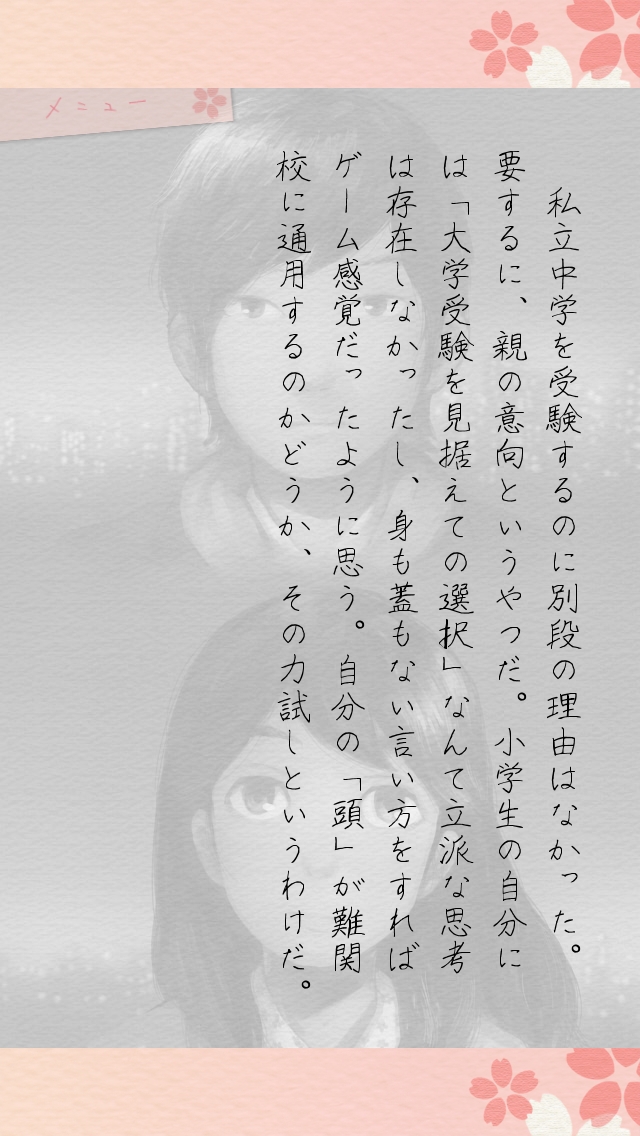 メニュー
私立中学を受験するのに別段の理由はなかった。
要するに、親の意向というやつだ。小学生の自分に
は「大学受験を見据えての選択」なんて立派な思考
は存在しなかったし、身も蓋もない言い方をすれば
ゲーム感覚だったように思う。自分の「頭」が難関
校に通用するのかどうか、その力試しというわけだ。